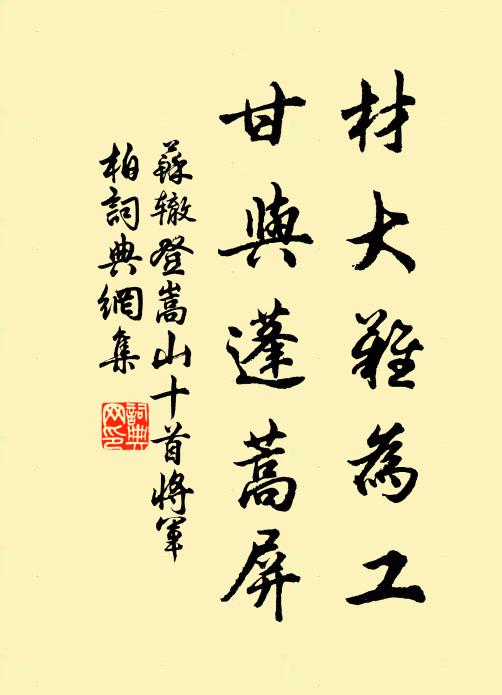 材大難為工
甘與蓬蒿屏
蘇轍登嵩山十首將軍
柏詞典網集
詞典网印